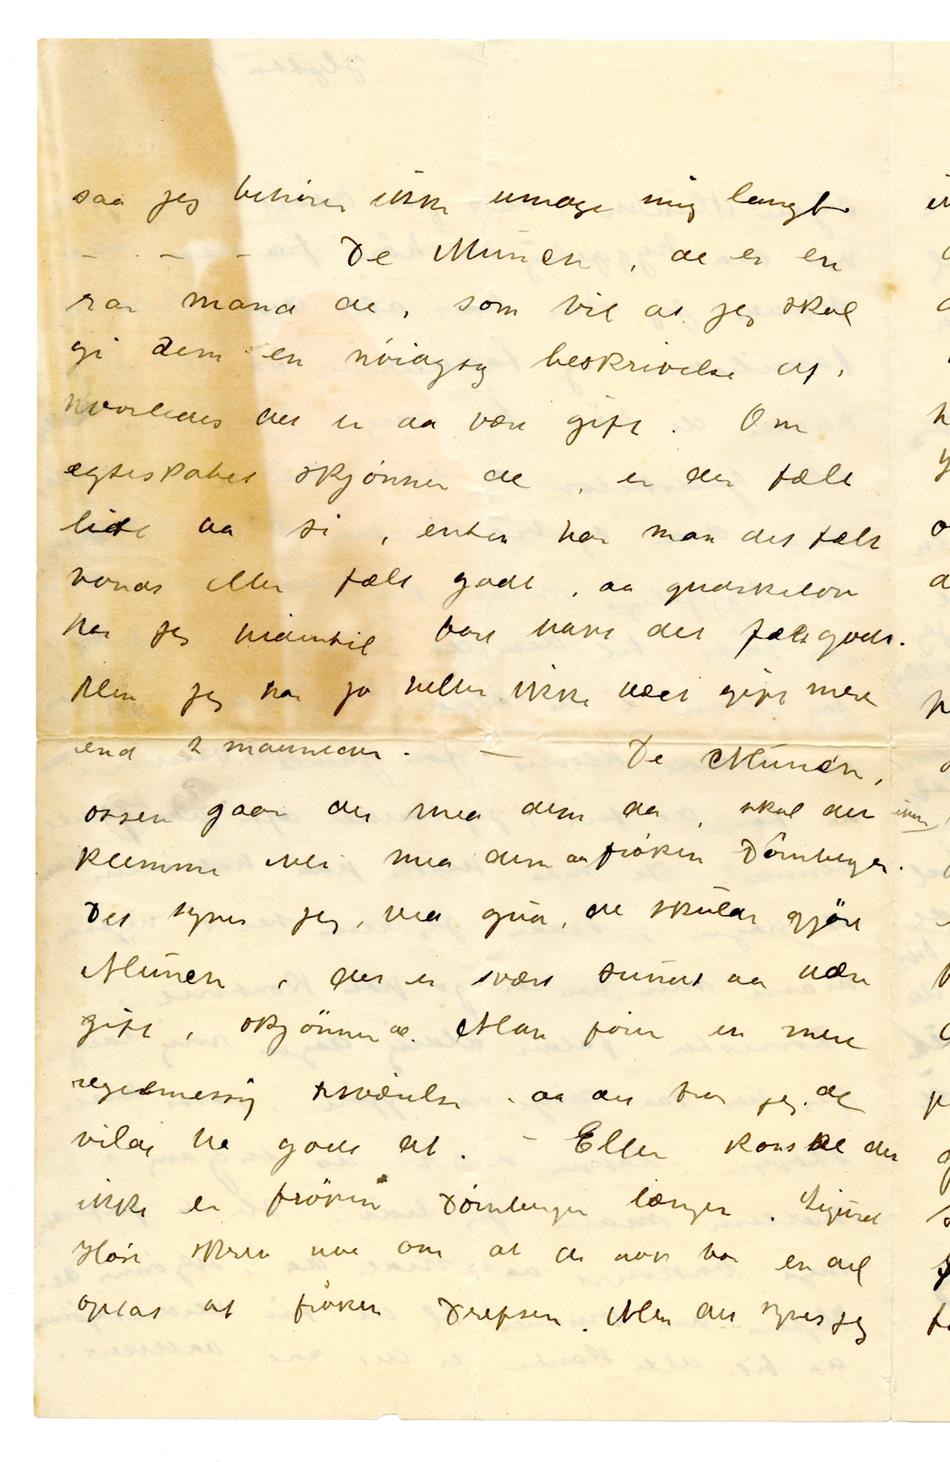 saa jeg behøver ikke umage mig langt.
— . — — De Munch, de er en
rar mand de, som vil at jeg skal
gi dem en nöiagtig beskrivelse af,
hvorledes det er aa være gift. Om
egteskabet skjönner de, er der fælt
lidt aa si, enten har man det fælt
vondt eller fælt godt, aa gudskelov
har jeg hidentil bare havt det fælt godt.
Men jeg har jo heller ikke været gift mere
end 2 maaneder. — De Munch,
ossen gaar det med dem da, skal det ikke
klemme med dem aa frøken Dörnberger.
Det synes jeg, ved gud, de skulde gjöre
Munch, det er svært sundt aa være
gift, skjönner de. Man förer en mere
regelmessig tilværelse aa det tror jeg de
vilde ha godt at. — Eller kanske det
ikke er fröken Dörnberger længer. Sigurd
Höst skrev noe om at de nok var en del
optat af fröken Drefsen. Men det synes jeg